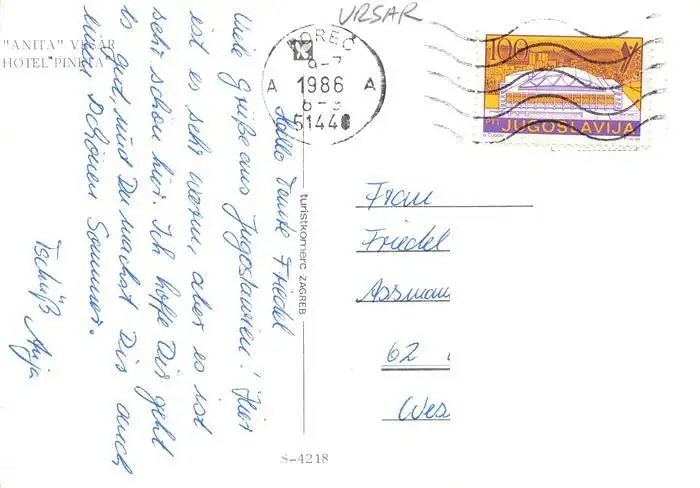 VRSAR
"ANITA" VRSAR
HOTEL "PINETA"
Hallo Tante Friedel
viele Grüße aus Jugoslawien! Hier
ist es sehr warm, aber es ist
sehr schön hier. Ich hoffe Dir geht
es gut, und Du machst Dir auch
einen schönen Sommer.
Tschüß Anja
POREČ
9-7
A 1986 A
51440
100
PTT JUGOSLAVIJA
turistkomerc ZAGREB
Frau
Friedel
Assman
62
Wes
S-4218